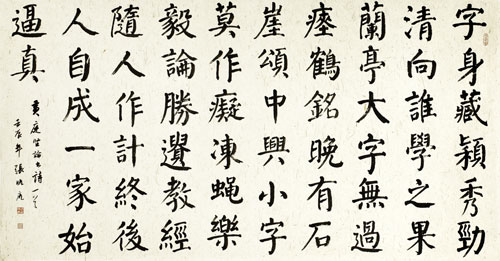 字身藏穎秀勁
清向誰學之果
蘭亭大字無過
瘞鶴銘晚有石
崖頌中興小字
莫作癡凍蠅樂
毅論勝遺教經
隨人作計終後
人自成一家始
逼真
黄庭堅論書詩一首
壬辰年 張